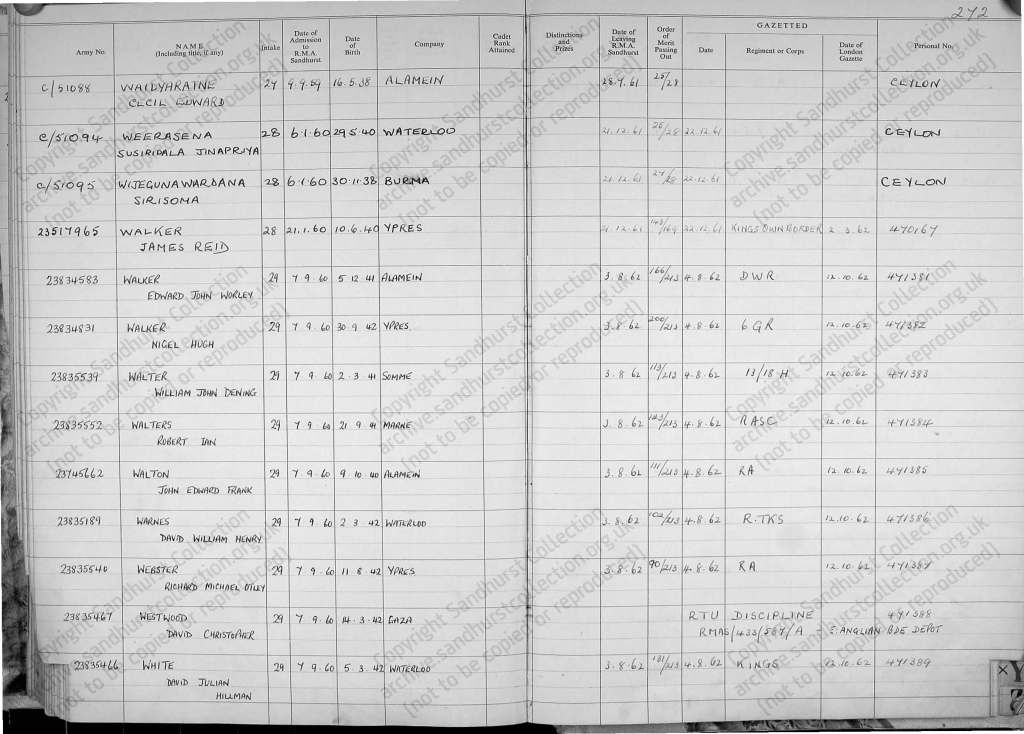 272
GAZETTED
Army No. NAME (Including title, if any) Intake Date of Admission to R.M.A. Sandhurst Date of Birth Company Cadet Rank Attained Distinctions and Prizes Date of Leaving R.M.A. Sandhurst Order of Merit Passing Out Date Regiment or Corps Date of London Gazette Personal No.
C/51088 WAIDYARATNE 27 9.9.59 16.5.38 ALAMEIN 28.7.61 25/28 CEYLON
CECIL EDWARD
C/51094 WEERASENA 28 6.1.60 29.5.40 WATERLOO 21.12.61 26/28 22.12.61 CEYLON
SUSIRIDALA JINAPRIYA
C/51095 WIJEGUNAWARDANA 28 6.1.60 30.11.38 BURMA 21.12.61 27/28 22.12.61 CEYLON
SIRISOMA
23517965 WALKER 28 21.1.60 10.6.40 YPRES 21.12.61 143/169 22.12.61 KINGS OWN BORDER 2.3.62 470167
JAMES REID
23834583 WALKER 29 7 9.60 5 12 41 ALAMEIN 3.8.62 166/213 4.8.62 DWR 12.10.62 471381
EDWARD JOHN WORLEY
23834831 WALKER 29 7 9.60 30 9 42 YPRES 3.8.62 200/213 4.8.62 6 GR 12.10.62 471382
NIGEL HUGH
23835539 WALTER 29 7 9.60 2.3.41 SOMME 3.8.62 113/213 4.8.62 13/18 H 12.10.62 471383
WILLIAM JOHN DENING
23835552 WALTERS 29 7 9.60 21 9 41 MARNE 3.8.62 123/213 4.8.62 RASC 12.10.62 471384
ROBERT IAN
23745662 WALTON 29 7 9.60 9 10 40 ALAMEIN 3.8.62 111/213 4.8.62 RA 12.10.62 471385
JOHN EDWARD FRANK
23835189 WARNES 29 7 9.60 2 3.42 WATERLOO 3.8.62 102/213 4.8.62 R.TKS 12.10.62 471386
DAVID WILLIAM HENRY
23835540 WEBSTER 29 7 9.60 11 8 42 YPRES 3.8.62 90/213 4.8.62 RA 12.10.62 471387
RICHARD MICHAEL OTLEY
23835467 WESTWOOD 29 7 9.60 14.3.42 GAZA RTU DISCIPLINE 471388
DAVID CHRISTOPHER RMAS/433/567/A E. ANGLIAN BDE DEPOT
23835466 WHITE 29 7 9.60 5.3.42 WATERLOO 3.8.62 181/213 4.8.62 KINGS 12.10.62 471389
DAVID JULIAN
HILLMAN
Copyright Sandhurst Collection
archive.sandhurstcollection.org.uk
(not to be copied or reproduced)